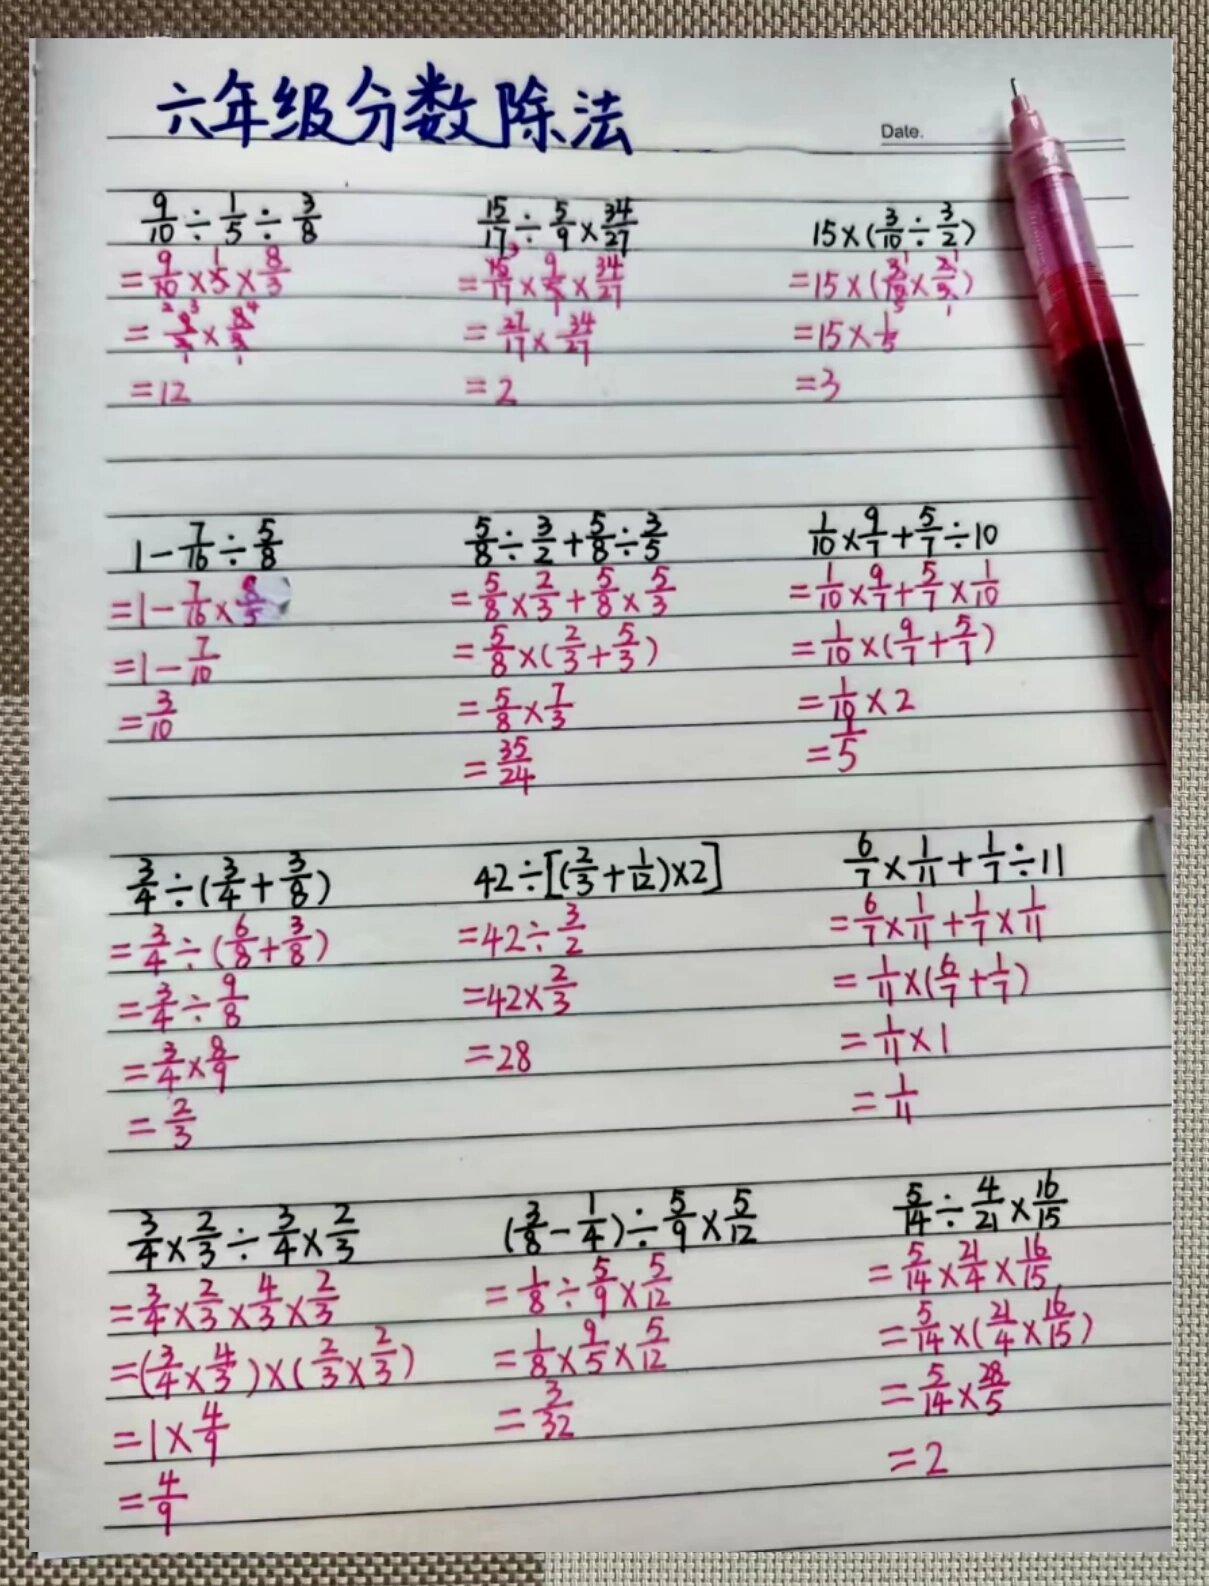 六年级分数除法
Date.
9/10 ÷ 1/5 ÷ 3/8
= 9/10 × 1/5 × 8/3
= 12
15/17 ÷ 5/9 × 34/27
= 15/17 × 9/5 × 34/27
= 27/17 × 34/27
= 2
15 × (3/10 ÷ 3/2)
= 15 × (3/10 × 2/3)
= 15 × 1/5
= 3
1 - 7/16 ÷ 5/8
= 1 - 7/16 × 8/5
= 1 - 7/10
= 3/10
5/8 ÷ 3/2 + 5/8 ÷ 3/5
= 5/8 × 2/3 + 5/8 × 5/3
= 5/8 × (2/3 + 5/3)
= 5/8 × 7/3
= 35/24
1/10 × 9/7 + 5/7 ÷ 10
= 1/10 × 9/7 + 5/7 × 1/10
= 1/10 × (9/7 + 5/7)
= 1/10 × 2
= 1/5
3/4 ÷ (3/4 + 3/8)
= 3/4 ÷ (6/8 + 3/8)
= 3/4 ÷ 9/8
= 3/4 × 8/9
= 2/3
42 ÷ [(2/3 + 1/12) × 2]
= 42 ÷ 3/2
= 42 × 2/3
= 28
6/7 × 1/11 + 1/7 ÷ 11
= 6/7 × 1/11 + 1/7 × 1/11
= 1/11 × (6/7 + 1/7)
= 1/11 × 1
= 1/11
3/4 × 2/3 ÷ 3/4 × 2/3
= 3/4 × 2/3 × 4/3 × 2/3
= (3/4 × 4/3) × (2/3 × 2/3)
= 1 × 4/9
= 4/9
(3/8 - 1/4) ÷ 5/9 × 5/12
= 1/8 ÷ 5/9 × 5/12
= 1/8 × 9/5 × 5/12
= 3/32
5/14 ÷ 4/21 × 16/15
= 5/14 × 21/4 × 16/15
= 5/14 × (21/4 × 16/15)
= 5/14 × 28/5
= 2